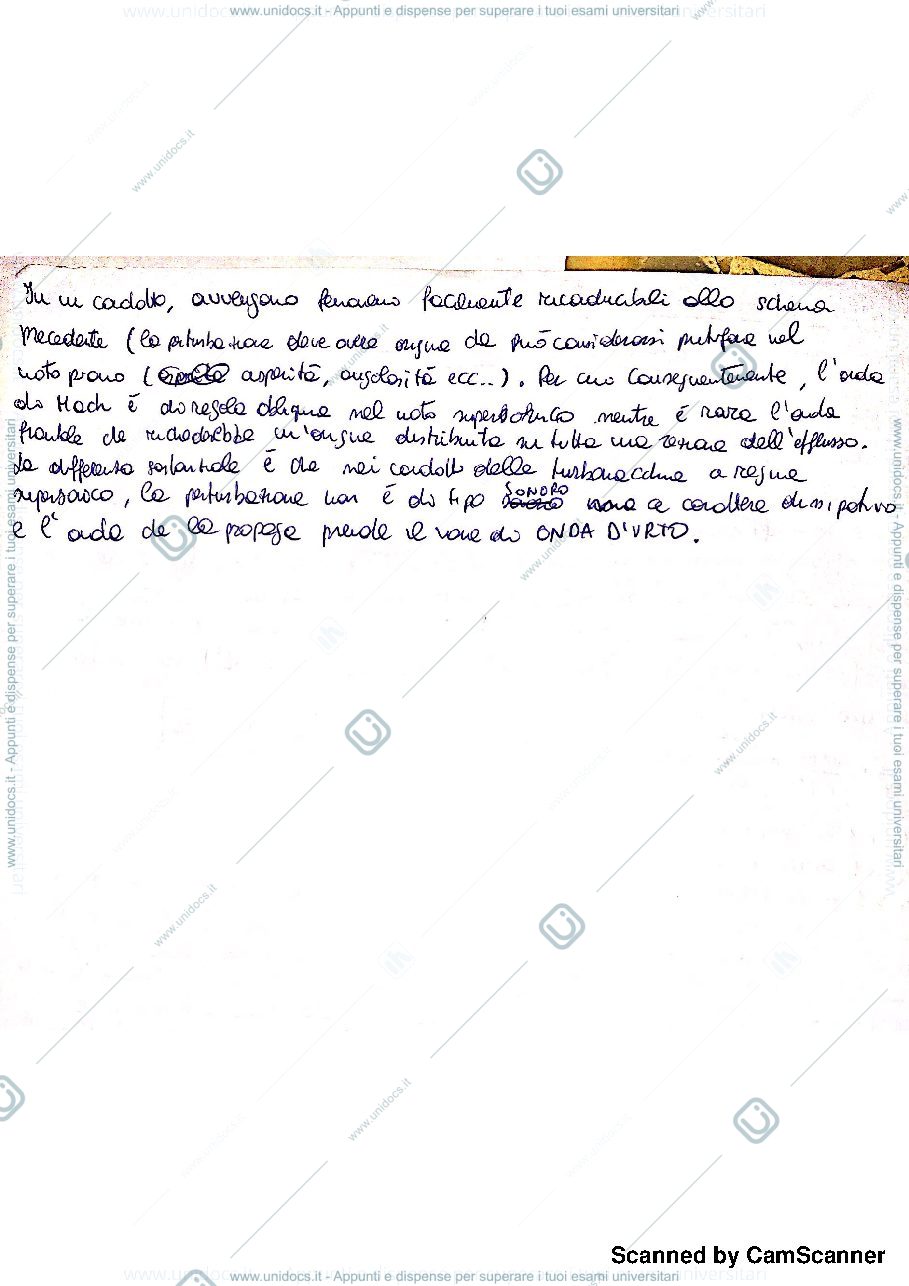 www.unidocs.it - Appunti e dispense per superare i tuoi esami universitari
In un condotto, avvengono fenomeni facilmente riconducibili allo schema
precedente (la perturbazione deve avere origine che può considerarsi puntiforme nel
moto piano ( asperità, angolosità ecc..). Per cui conseguentemente, l'onda
di Mach è di regola obliqua nel moto supersonico mentre è rara l'onda
frontale che richiederebbe un'origine distribuita su tutta una sezione dell'efflusso.
La differenza sostanziale è che nei condotti delle turbomacchine a regime
supersonico, la perturbazione non è di tipo SONORO a carattere dissipativo
e l'onda che la propaga prende il nome di ONDA D'URTO.
www.unidocs.it - Appunti e dispense per superare i tuoi esami universitari
www.unidocs.it - Appunti e dispense per superare i tuoi esami universitari
www.unidocs.it
www.unidocs.it
www.unidocs.it
www.unidocs.it
Scanned by CamScanner
www.unidocs.it - Appunti e dispense per superare i tuoi esami universitari